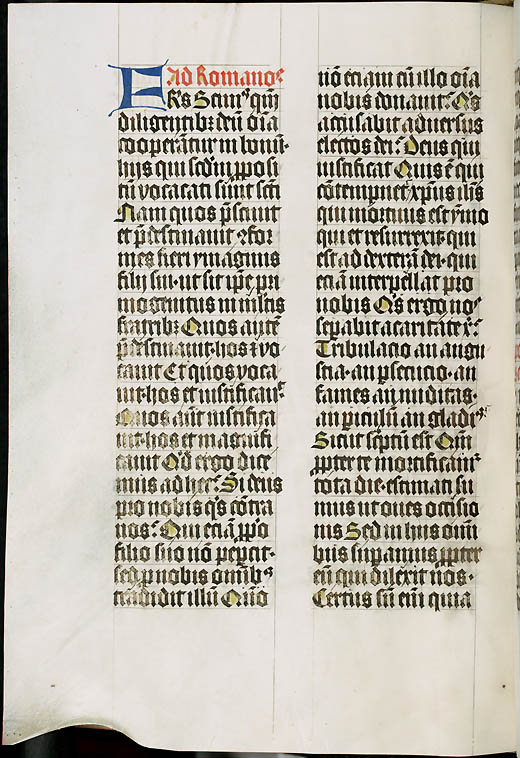 Ad Romanos
FRs Scimꝰ qm̄
diligentibꝫ deū oīa
cooperātur in bonū·
hijs qui scdm pposi
tū vocacati sūnt scti
Nam quos p̄sciuit
et p̄destinauit ꝯfor
mes fieri ymaginis
filij sui· ut sit ipē pri
mogenitus in mltis
fratribꝫ Quos autē
p̄destinauit· hos ⁊ vo
cauit Et quos voca
uit· hos et iustificauit
Quos aūt iustifica
uit· hos et magnifi
cauit Qd ergo dice
mus ad hec? Si deus
pro nobis qs cōtra
nos? Qui eciā ppo
filio suo nō pepcit·
sed p nobis omibꝫ
tradidit illū Qmō
nō eciam cū illo oīa
nobis donauit? Qs
accusabit aduersus
electos dei? Deus qui
iustificat Quis ē qui
cōtempnet xpūs ihs
qui mortuus est ymo
qui et resurrexit· qui
est ad dexterā dei· qui
eciā interpellat pro
nobis Qs ergo nos
sepabit a caritate xi?
Tribulacio an angu
stia· an psecucio· an
fames an nuditas·
an piculū an gladiꝰ?
Sicut scptū est Qm̄
ppter te mortificamꝰ
tota die· estimati su
mus ut oues occisio
nis Sed in hiis omi
bus supamus ppter
eū qui dilexit nos·
Certus sū em̄ quia